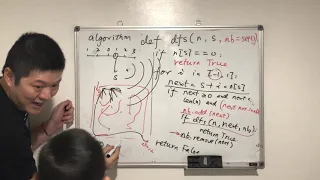 algorithm def dfs(n, s, nb=set()):
if n[s] == 0:
return True
for i in [-1, 1]:
next = s + i * n[s]
if next >= 0 and next <
len(n) and (next not in nb):
nb.add(next)
if dfs(n, next, nb):
return True
nb.remove(next)
return False